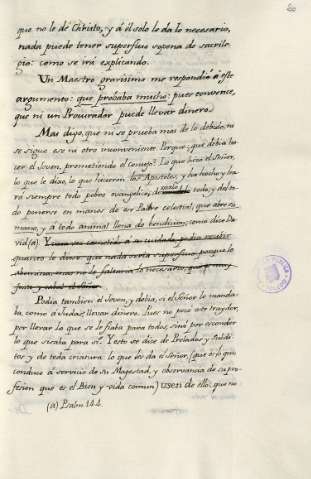 que no le de Christo, y á él solo le da lo necesario,
nada puede tener superfluo sopena de sacrile-
gio: como se irá explicando.
Un Maestro gravísimo me respondió á este
argumento: que probaba mucho: pues convence,
que ni un Procurador puede llevar dinero.
Mas digo, que ni se prueba mas de lo debido, ni
se sigue ese ni otro inconveniente. Porque ¿que debia ha-
cer el Joven, prometiendo el consejo? Lo que hizo el Señor,
lo que le dixo, lo que hicieron los Apostoles, y ha hecho y ha-
rá siempre todo pobre evangelico: todo, y del to-
do ponerse en manos de su Padre celestial, que abre su
mano, y á todo animal llena de bendicion; como dice Da-
vid (a).
quanto le diese: que nada seria superfluo; porque lo
no le faltaria lo necesario, que
Podia tambien el Joven, y debia, si el Señor lo manda-
ba como á Judas, llevar dinero. Pues no pecó este traydor
por llevar lo que se le fiaba para todos, sinó por esconder
lo que sisaba para sí. Y esto se dice de Prelados y Subdi-
tos, y de toda criatura: lo que les da el Señor, (que és lo que
conduce á servicio de su Magestad, y observancia de su pro-
fesion que es el Bien y vida comun) usen de ello; que no
(a) Psalm. 144.